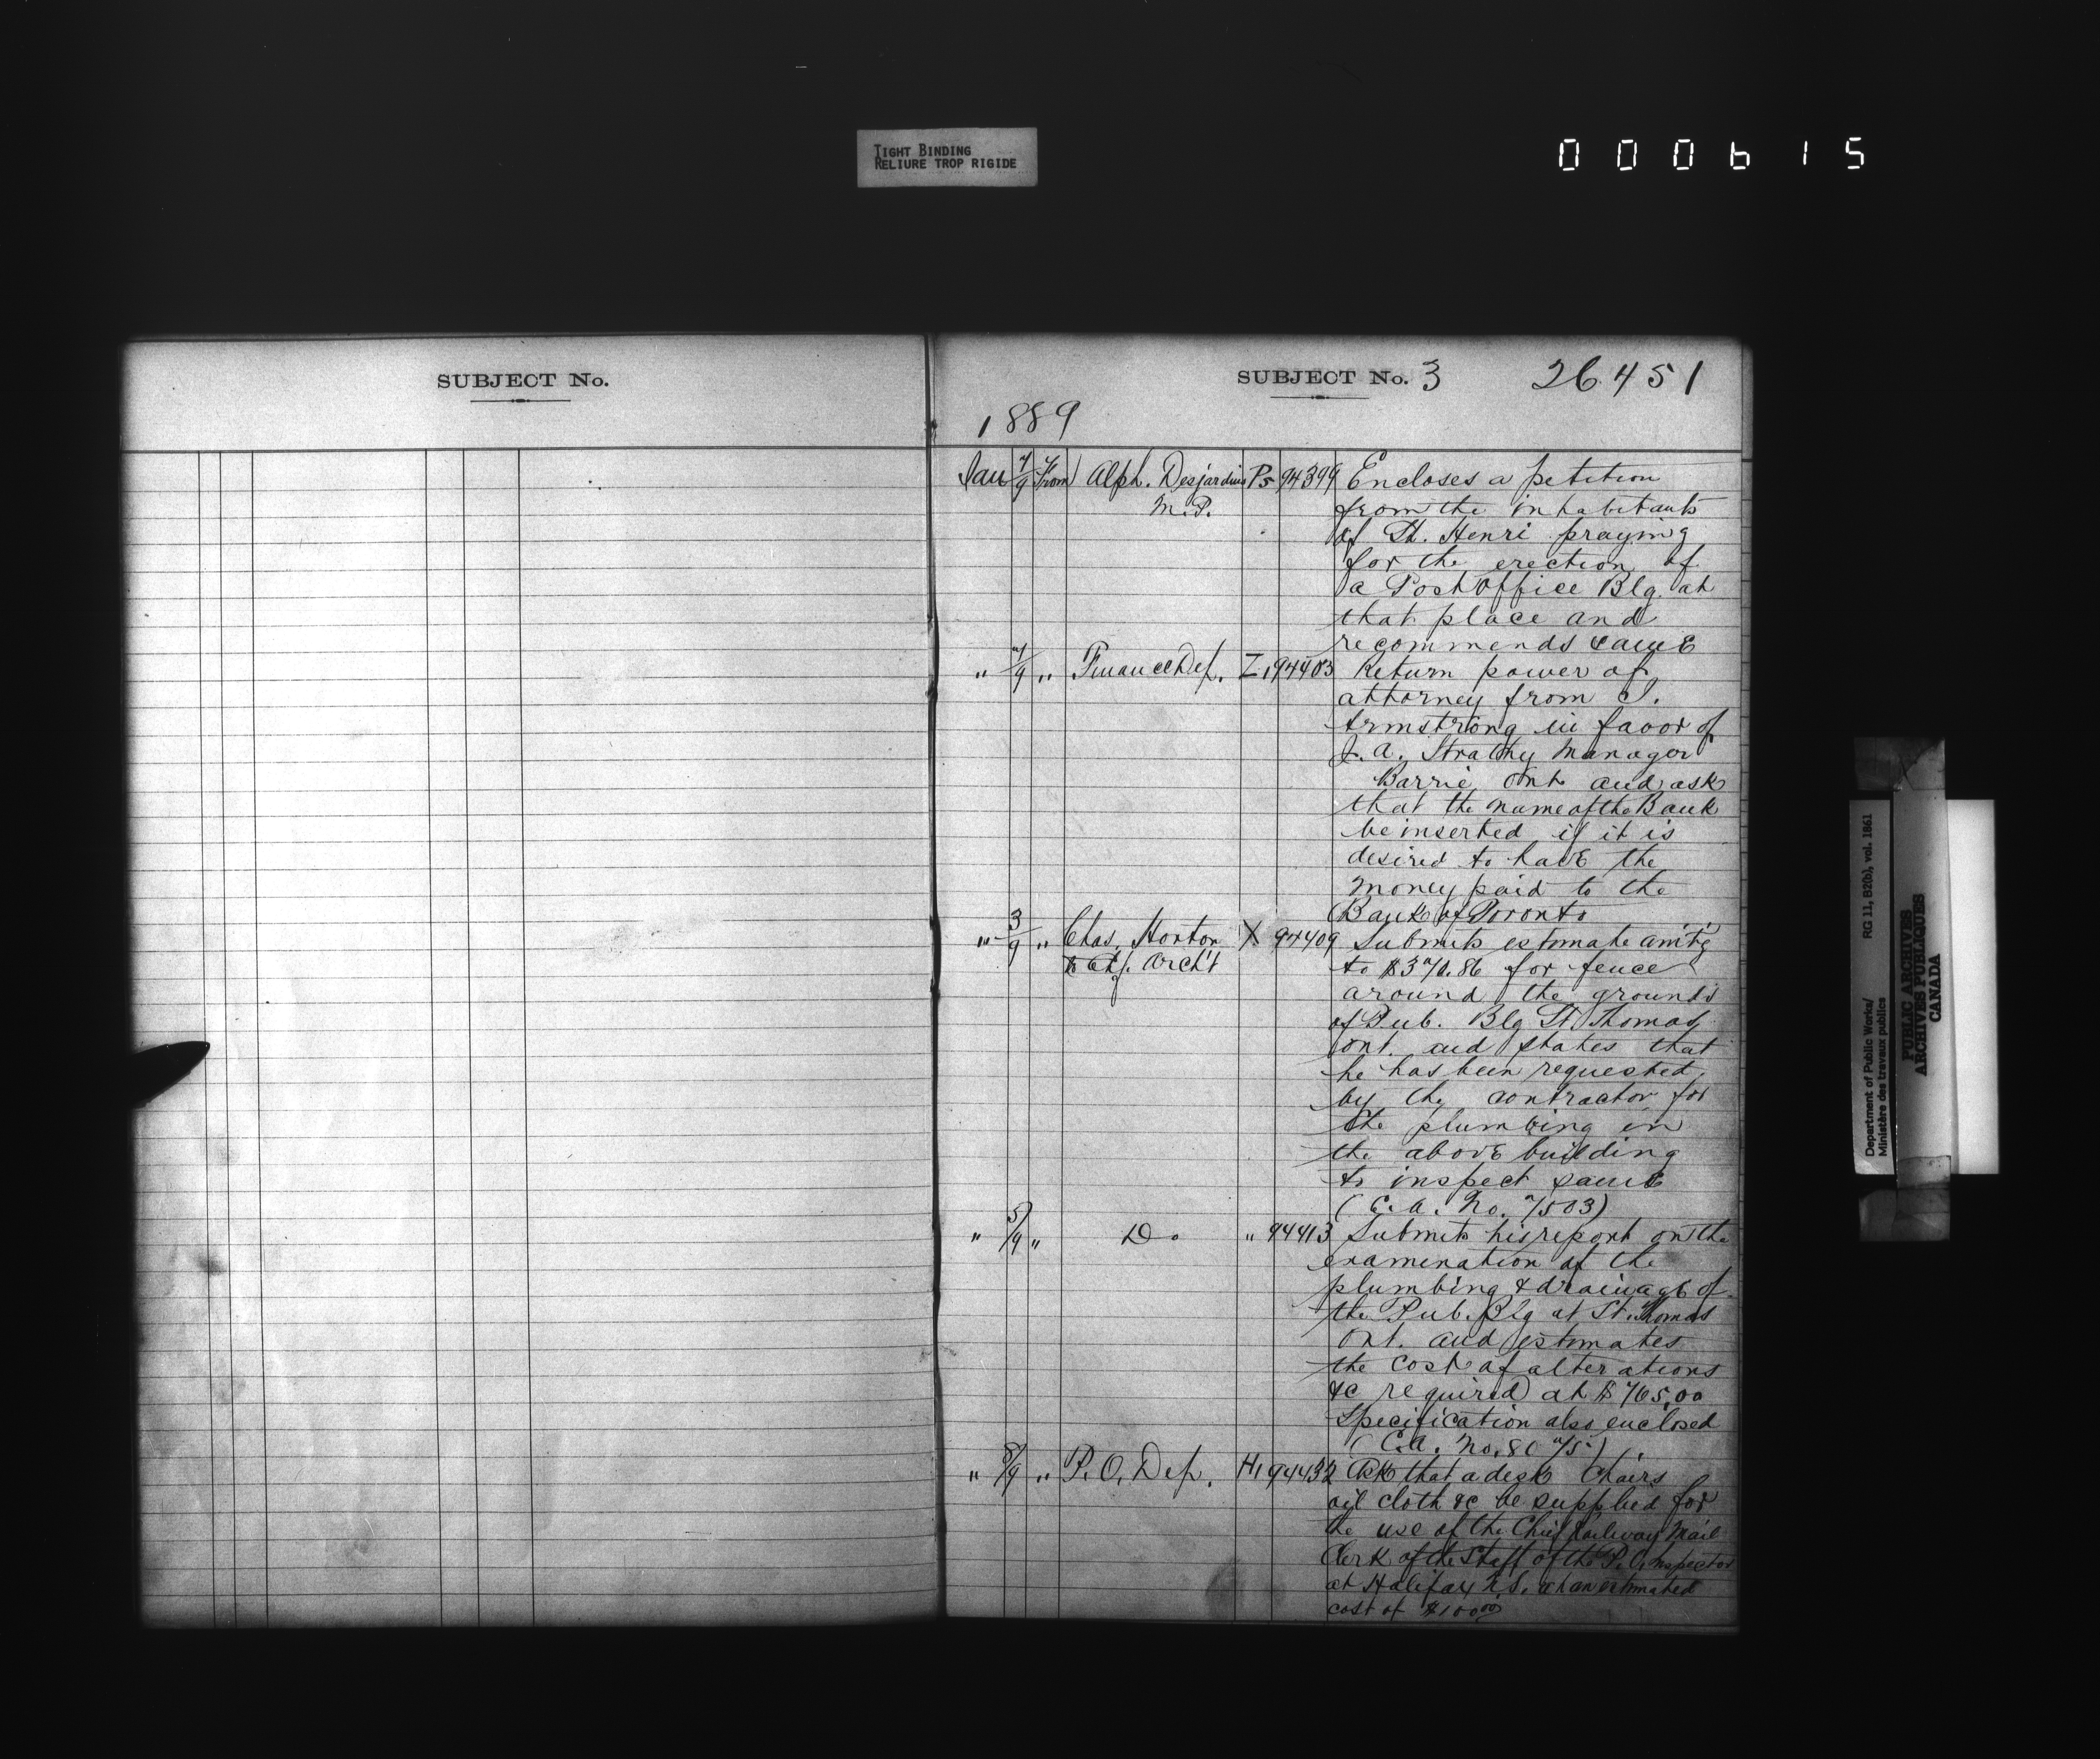 TIGHT BINDING
RELIURE TROP RIGIDE
000615
SUBJECT No.
SUBJECT No. 3 26451
1889
Jan 7/9 From Alph. Desjardins P5 94399 Encloses a petition
M.P. from the inhabitants
of St. Henri praying
for the erection of
a Post Office Blg. at
that place and
recommends same
" 7/9 " Finance Dep. Z1 94403 Return power of
attorney from J.
Armstrong in favor of
J. A. Strathy Manager
Barrie Ont and ask
that the name of the Bank
be inserted if it is
desired to have the
money paid to the
Bank of Toronto
" 3/9 " Chas. Horton X 94409 Submits estimate am'tg
to Chf. Arch't to $370.86 for fence
around the grounds
of Pub. Blg St. Thomas
Ont. and states that
he has been requested
by the contractor for
the plumbing in
the above building
to inspect same
(C.A. No. 7503)
" 5/9 " Do " 94413 Submits his report on the
examination of the
plumbing & drainage of
the Pub. Blg at St. Thomas
Ont. and estimates
the cost of alterations
&c required at $765.00
Specification also enclosed
(C.A. No.
" 8/9 " P. O. Dep. H1 94432 Ask that a desk Chairs
oil cloth &c be supplied for
the use of the Chief Railway Mail
Clerk of the Staff of the P. O. Inspector
at Halifax N.S. at an estimated
cost of $100 00
Department of Public Works/ RG 11, B2(b), vol. 1861
Ministère des travaux publics
PUBLIC ARCHIVES
ARCHIVES PUBLIQUES
CANADA